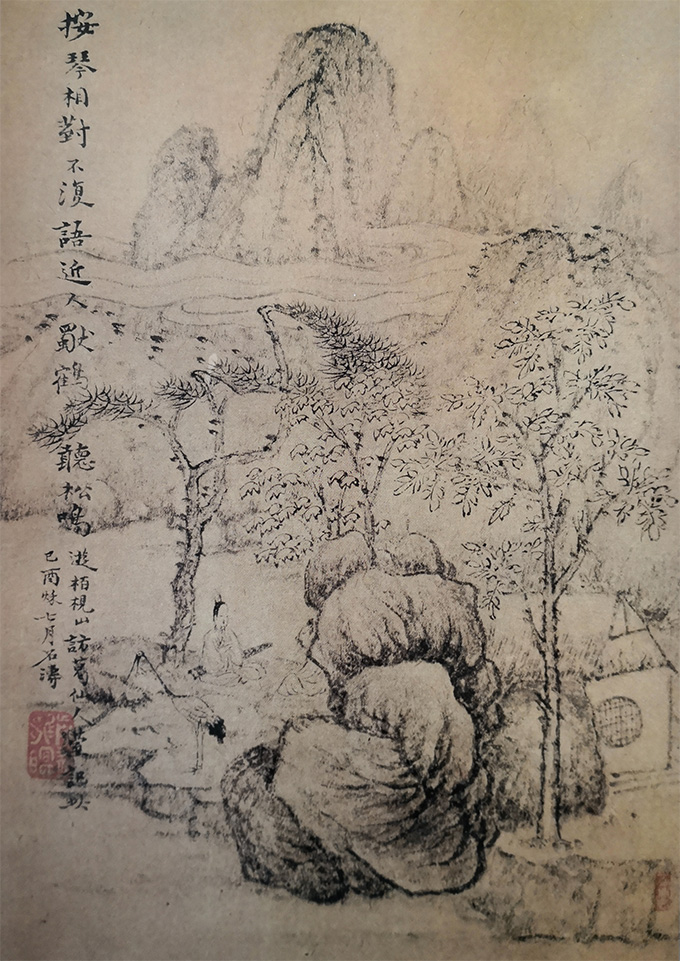 按琴相對不復語近人獸鶴聽松鳴
遊栢梘山訪葛仙人
己酉秋七月石濤